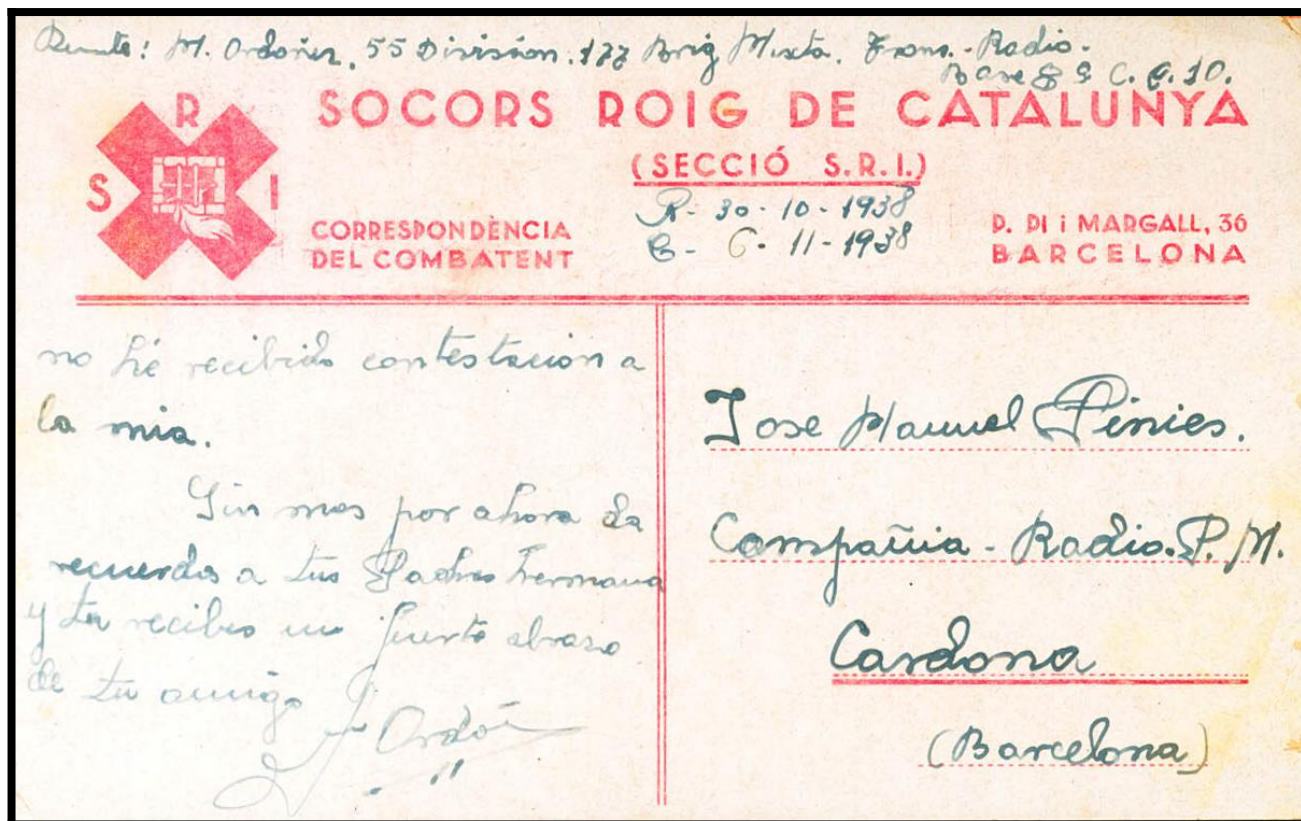 Remite: M. Ordoñez, 55 Division. 177 Brig Mixta. Trans.-Radio-
Base 8 C.C. 10.
SOCORS ROIG DE CATALUNYA
(SECCIÓ S.R.I.)
S R I
CORRESPONDÈNCIA
DEL COMBATENT
R- 30-10-1938
C- 6-11-1938
P. PI i MARGALL, 36
BARCELONA
no hé recibido contestacion a
la mia.
Sin mas por ahora da
recuerdos a tus Padres hermana
y tu recibes un fuerte abrazo
de tu amigo
Jose Manuel Pinies.
Compañia - Radio. P. M.
Cardona
(Barcelona)